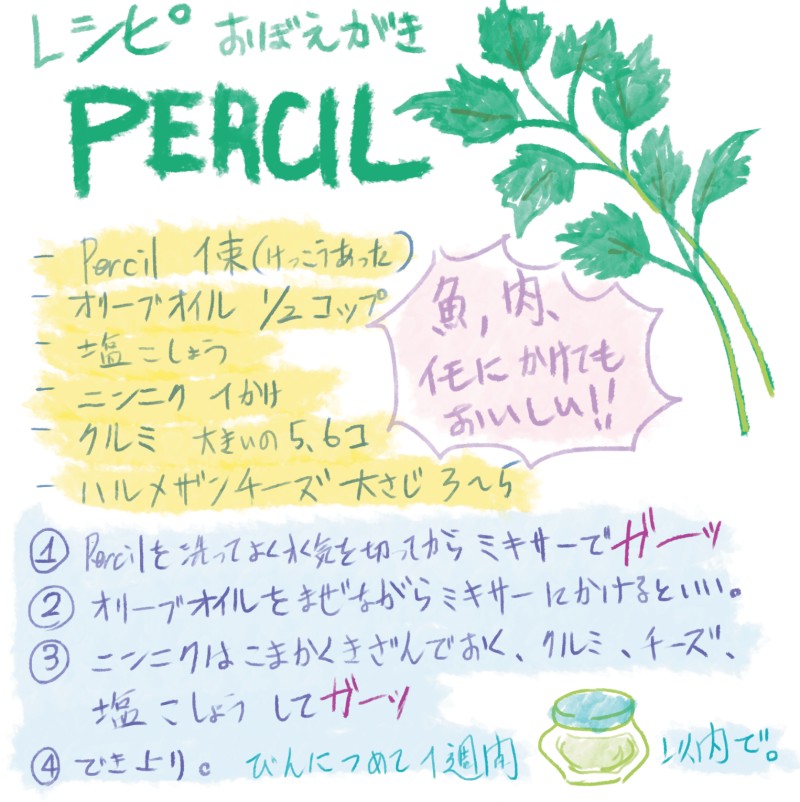 レシピ おぼえがき
PERCIL
- Percil 1束(けっこうあった)
- オリーブオイル 1/2コップ
- 塩こしょう
- ニンニク 1かけ
- クルミ 大きいの5、6コ
- パルメザンチーズ 大さじ3〜5
魚,肉、
イモにかけても
おいしい!!
① Percilを洗ってよく水気を切ってからミキサーでガーッ
② オリーブオイルをまぜながらミキサーにかけるといい。
③ ニンニクはこまかくきざんでおく、クルミ、チーズ、
塩こしょうしてガーッ
④ でき上り。 びんにつめて1週間 以内で。